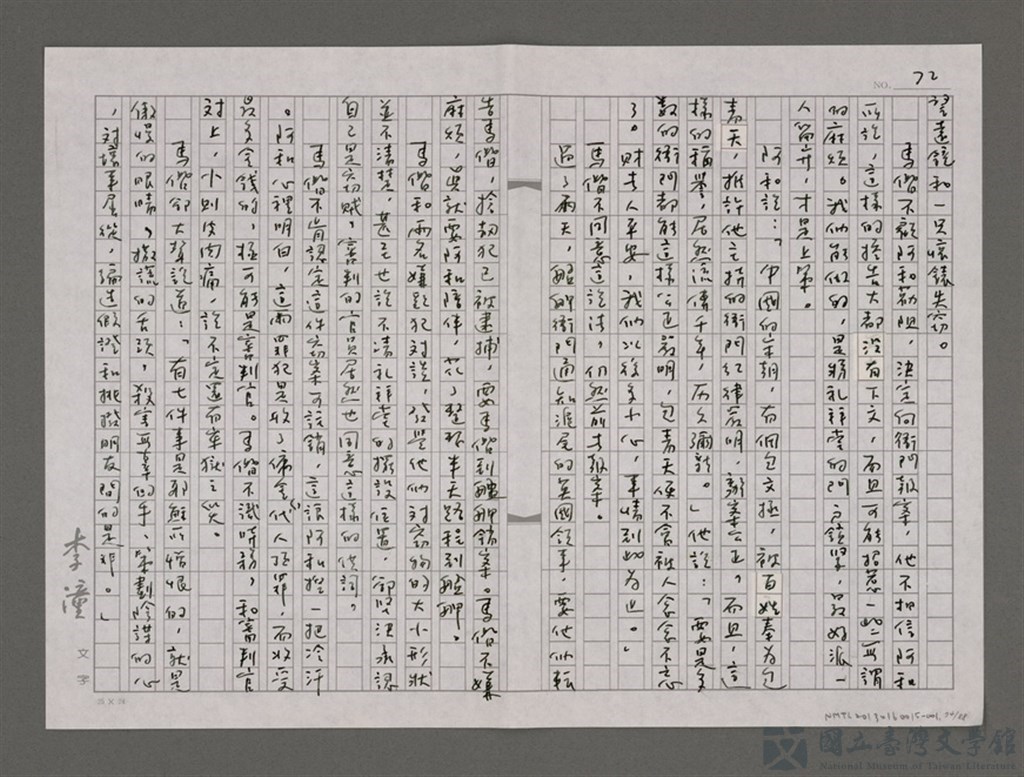 NO. 72
望遠鏡和一只懷錶失竊。
馬偕不顧阿和勸阻,決定向衙門報案,他不相信阿和
所說,這樣的控告大都沒有下文,而且可能招惹一些無謂
的麻煩。我們能做的,是將禮拜堂的門戶鎖緊,最好派一
人留守,才是上策。
阿和說:「中國的宋朝,有個包文極,被百姓奉為包
青天,推許他主持的衙門紀律嚴明,辦案公正,而且,這
樣的稱譽,居然流傳千年,历久彌新。」他說:「要是多
數的衙門都能這樣公正嚴明,包青天便不會被人念念不忘
了。財去人平安,我們以後多小心,事情到此為止。」
馬偕不同意這說法,仍然前去報案。
過了兩天,艋舺衙門通知淡水的英國領事,要他們轉
告馬偕,搶劫犯已被逮捕,要馬偕到艋舺銷案。馬偕不嫌
麻煩,還就要阿和陪伴,花了整整半天路程到艋舺。
馬偕和兩名嫌疑犯對談,發覺他們對竊物的大小形狀
並不清楚,甚至也說不清禮拜堂的擺設位置,卻堅決承認
自己是竊賊,審判的官員居然也同意這樣的供詞。
馬偕不肯認定這件竊案可說銷,這讓阿和捏一把冷汗
。阿和心裡明白,這兩罪犯是收了佣金代人頂罪,而收受
最多金錢的,極可能是審判官。馬偕不識時務,和審判官
對上,小則皮肉痛,說不定還有牢獄之災。
馬偕卻大聲說道:「有七件事是耶穌所憎恨的,就是
傲慢的眼睛,撒謊的舌頭,殺害無辜的手,策劃陰謀的心
,對壞事屈從,編造假證和挑撥朋友間的是非。」
李潼
文字
25 × 24
NMTL20130160015-001
國立臺灣文學館
National Museum of Taiwan Literature